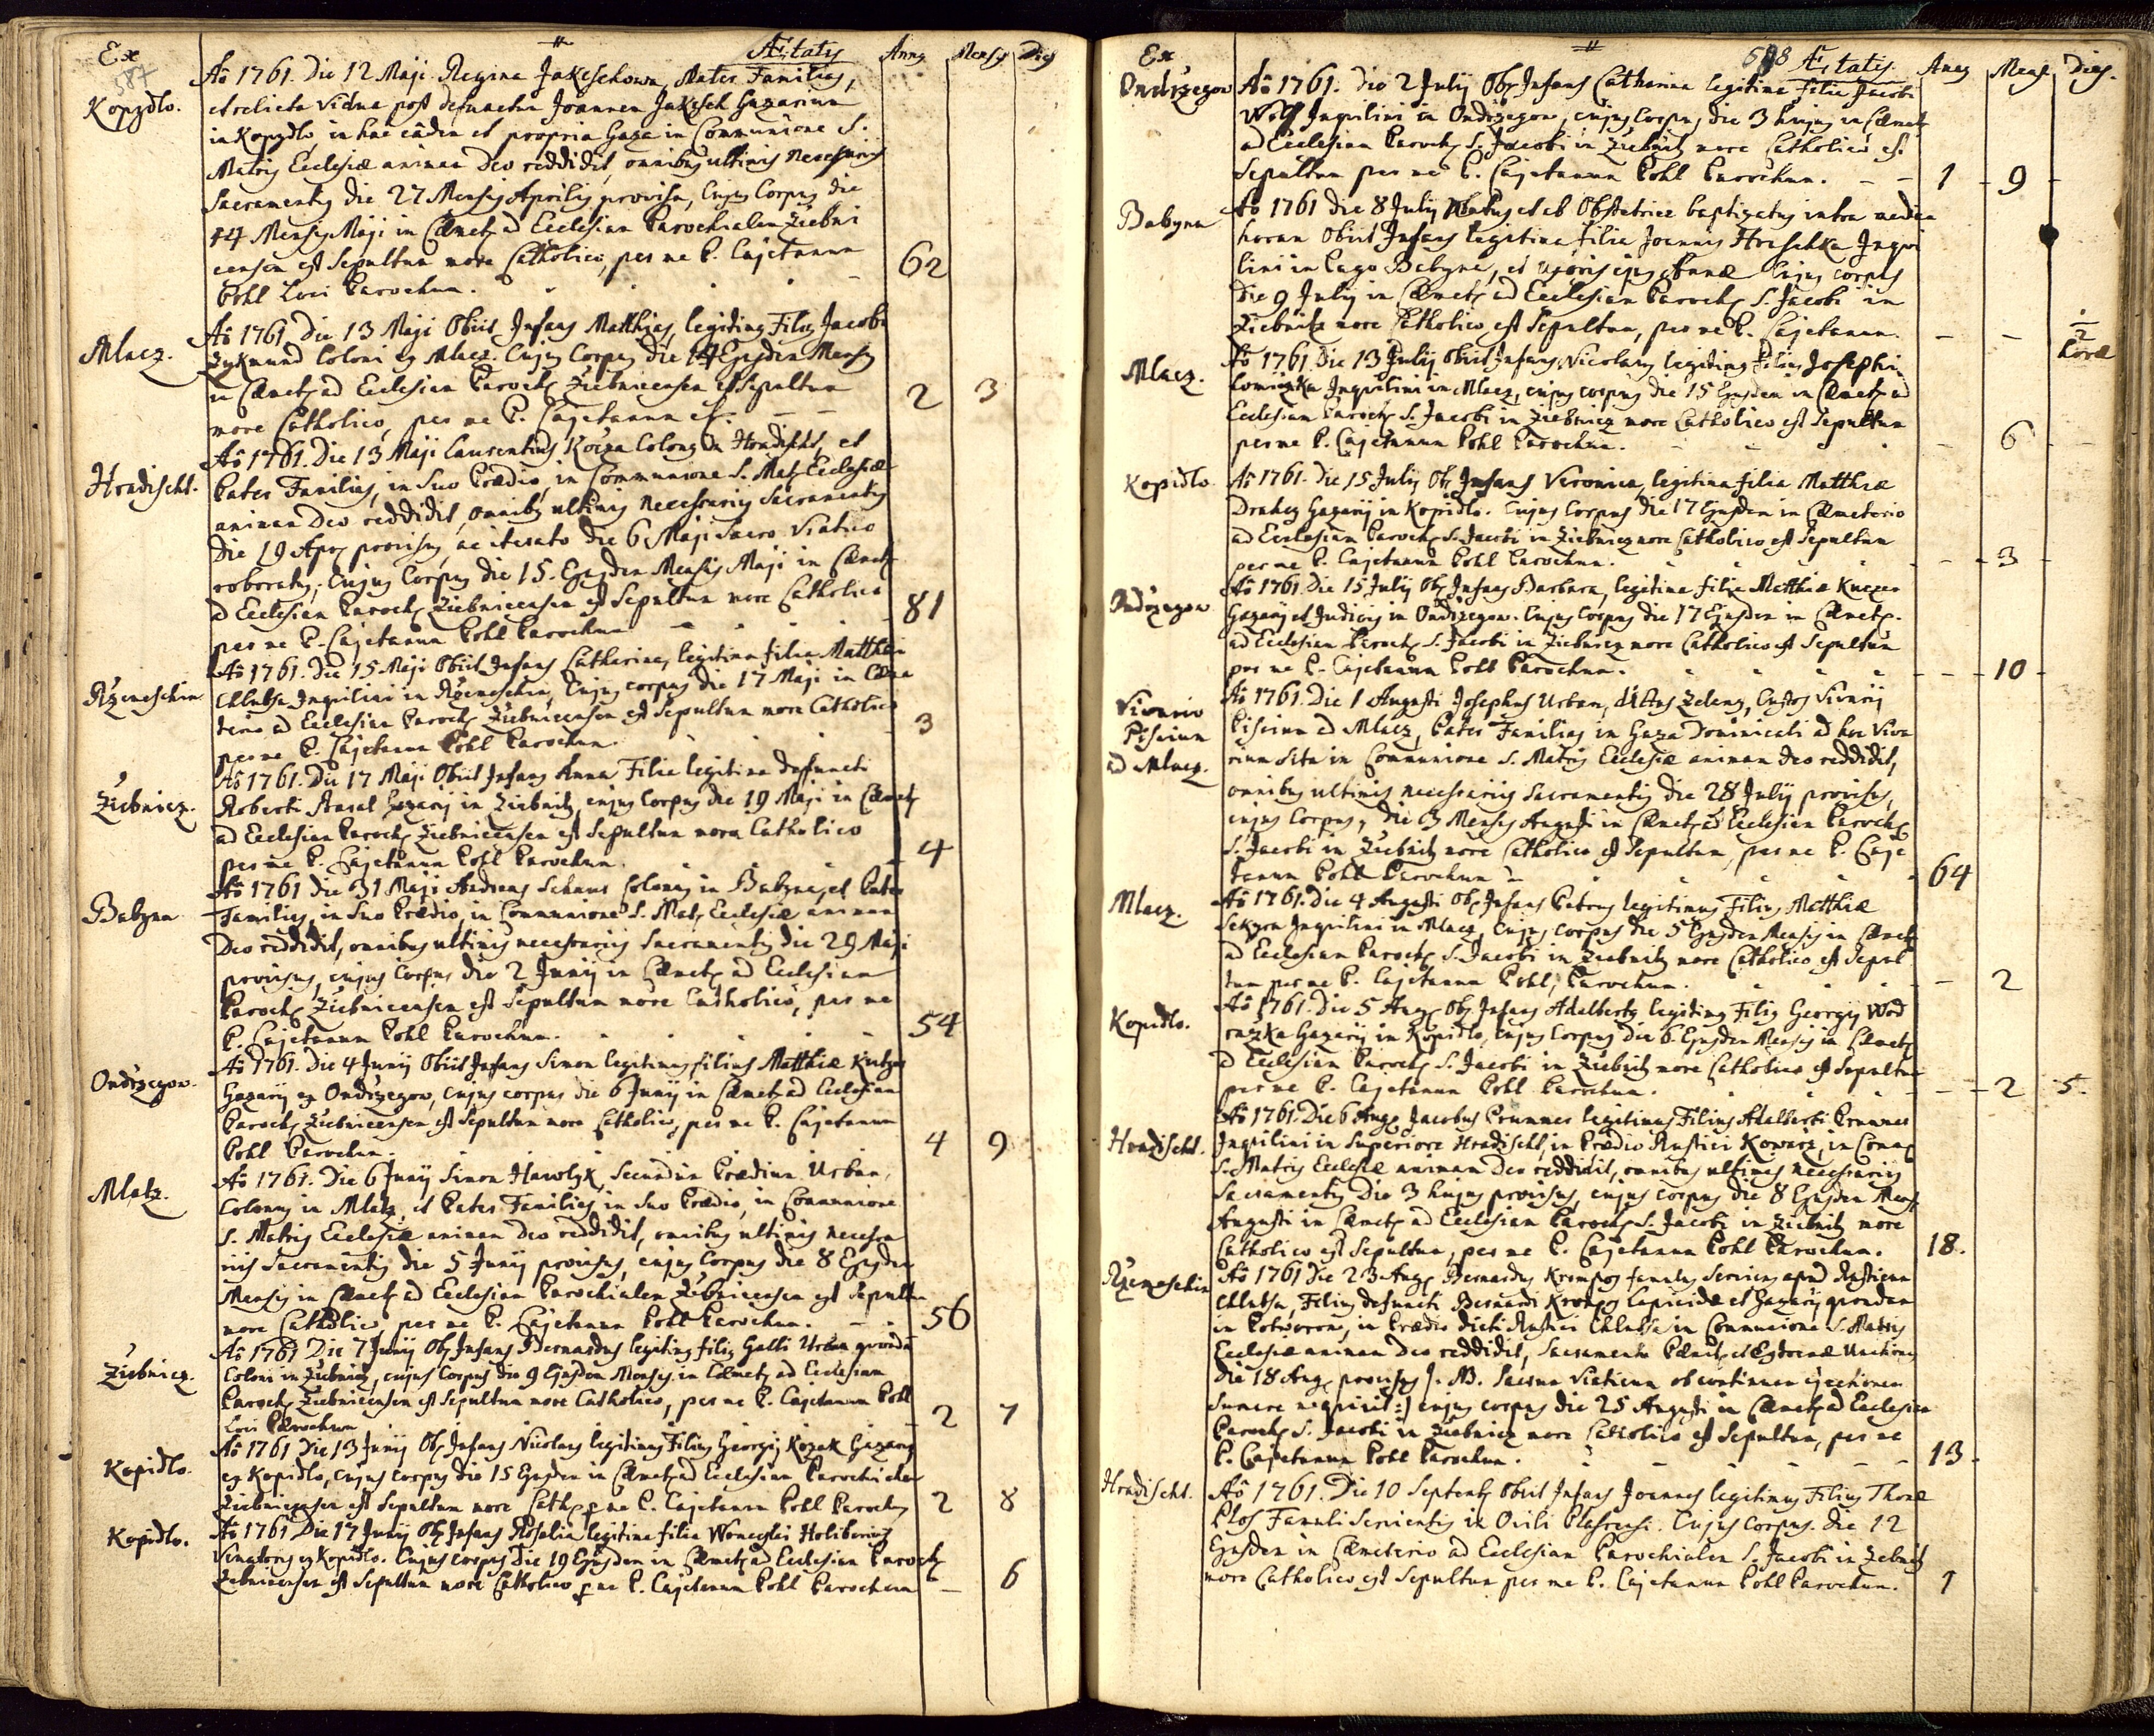 Ex
587
Aetatis Anny Mensy Dies
Kopydlo.
Aô 1761. Die 12 Maji Regina Jakeschowa, Mater Familias,
et relicta Vidua post defunctum Joannem Jakesch Gazarium
in Kopydlo, in hac eâdem et propria Gaza in Communione S.
Matris Ecclesiæ animam Deo reddidit, omnibus ultimis necessariis
Sacramentis die 27 Mensis Aprilis provisa, Cujus Corpus die
14 Mensis Maji in Cæmet: ad Ecclesiam Parochialem Ziebni
censem est Sepultum more Catholico, per me P. Cajetanum
Pohl Loci Parochum. 62
Mlacz.
Aô 1761 Die 13 Maji Obiit Infans Matthias, legitimus Filius Jacobi
Zykmund Coloni ex Mlacz. Cujus Corpus die 14 Ejusdem Mensis
in Cæmet: ad Ecclesiam Paroch: Ziebnicensem est Sepultum
more Catholico, per me P. Cajetanum etc. 2 3
Hradischt.
Aô 1761. Die 13 Maji Laurentius Kocza Colonus in Hradischt, et
Pater Familias, in Suo Prædio, in Communione S. Mat: Ecclesiæ
animam Deo reddidit, omnibus ultimis necessariis Sacramentis
Die 19 Apr: provisus, ac iterato die 6 Maji Sacro Viatico
roboratus; Cujus Corpus die 15. Ejusdem Mensis Maji in Cæmet:
ad Ecclesiam Paroch: Ziebnicensem est Sepultum more Catholico
per me P. Cajetanum Pohl Parochum 81
Rzemeschin
Aô 1761. Die 15 Maji Obiit Infans Catharina, legitima filia Matthæi
Chlubsa Inquilini in Rzemeschin, Cujus corpus die 17 Maji in Cæme
terio ad Ecclesiam Paroch: Ziebnicensem est Sepultum more Catholico
per me P. Cajetanum Pohl Parochum. 3
Ziebnicz.
Aô 1761. Die 17 Maji Obiit Infans Anna Filia legitima defuncti
Roberti Gazarij in Ziebnitz cujus Corpus die 19 Maji in Cæmet:
ad Ecclesiam Paroch: Ziebnicensem est Sepultum more Catholico
per me P. Cajetanum Pohl Parochum. 4
Babyna
Aô 1761 Die 31 Maji Andreas Schaur Colonus in Babyna, et Pater
Familias, in Suo Prædio, in Communione S. Mat: Ecclesiæ animam
Deo reddidit, omnibus ultimis necessariis Sacramentis die 29 Maji
provisus, cujus Corpus die 2 Junij in Cæmet: ad Ecclesiam
Paroch: Ziebnicensem est Sepultum more Catholico, per me
P. Cajetanum Pohl Parochum. 54
Ondrzegow.
Aô 1761. Die 4 Junij Obiit Infans Simon legitimus filius Matthiæ
Gazarij ex Ondrzegow, cujus corpus die 6 Junij in Cæmet: ad Ecclesiam
Paroch: Ziebnicensem est Sepultum more Catholico, per me P. Cajetanum
Pohl Parochum. 4 9
Mlatz.
Aô 1761. Die 6 Junij Simon Hawlyk, Secundum Prædium Urban,
Colonus in Mlatz, et Pater Familias, in Suo Prædio, in Communione
S. Matris Ecclesiæ animam Deo reddidit, omnibus ultimis necessa
riis Sacramentis die 5 Junij provisus, cujus Corpus die 8 Ejusdem
Mensis in Cæmet: ad Ecclesiam Parochialem Ziebnicensem est Sepultum
more Catholico, per me P. Cajetanum Pohl Parochum. 56
Ziebnicz.
Aô 1761 Die 7 Junij Ob: Infans Bernardus legitimus filius Galli Urban quondam
Coloni in Ziebnicz, cujus Corpus die 9 Ejusdem Mensis in Cæmet: ad Ecclesiam
Paroch: Ziebnicensem est Sepultum more Catholico, per me P. Cajetanum Pohl
Loci Parochum 2 7
Kopidlo.
Aô 1761 Die 13 Junij Ob: Infans Nicolaus legitimus Filius Georgij Kozak Gazarij
ex Kopidlo, cujus corpus die 15 Ejusdem in Cæmet: ad Ecclesiam Parochialem
Ziebnicensem est Sepultum more Cath: per me P. Cajetanum Pohl Parochum 2 8
Kopidlo.
Aô 1761 Die 17 Junij Ob: Infans Rosalia legitima filia Wenceslai
Venatoris ex Kopidlo. Cujus corpus Die 19 Ejusdem in Cæmet: ad Ecclesiam Paroch:
Ziebnicensem est Sepultum more Catholico per me P. Cajetanum Pohl Parochum — 6
Ex
Aetatis. Annj Mens Dies.
Ondrzegow
Aô 1761. Die 2 Julij Ob: Infans Catharina legitima Filia Jacobi
Wolf Inquilini in Ondrzegow, cujus Corpus die 3 hujus in Cæmet:
ad Ecclesiam Paroch: S. Jacobi in Ziebnitz more Catholico est
Sepultum per me P. Cajetanum Pohl Parochum. 1 9
Babyna
Aô 1761 Die 8 Julij Natus et ab Obstetrice baptizatus intra mediam
horam Obiit Infans legitima filia Joannis Hreschka Inqui
lini in Pago Babyna, et Uxoris ejus Annæ Cujus corpus
Die 9 Julij in Cæmet: ad Ecclesiam Paroch: S. Jacobi in
Ziebnitz more Catholico est Sepultum, per me P. Cajetanum. — — 1/2 horæ
Mlacz.
Aô 1761 Die 13 Julij Obiit Infans Nicolaus legitimus Filius Josephi
Inquilini in Mlacz, cujus corpus die 15 Ejusdem in Cæmet: ad
Ecclesiam Paroch: S. Jacobi in Ziebnicz more Catholico est Sepultum
per me P. Cajetanum Pohl Parochum. — 6
Kopidlo
Aô 1761. Die 15 Julij Ob: Infans Veronica, legitima filia Matthiæ
Gazarij in Kopidlo. Cujus Corpus die 17 Ejusdem in Cæmeterio
ad Ecclesiam Paroch: S. Jacobi in Ziebnicz more Catholico est Sepultum
per me P. Cajetanum Pohl Parochum. — 3
Ondrzegow
Aô 1761. Die 15 Julij Ob: Infans Barbara, legitima filia Matthiæ
Gazarij et Judicis in Ondrzegow. Cujus Corpus die 17 Ejusdem in Cæmet:
ad Ecclesiam Paroch: S. Jacobi in Ziebnicz more Catholico est Sepultum
per me P. Cajetanum Pohl Parochum. — 10
Vivario
Piscium
ad Mlacz.
Aô 1761. Die 1 Augusti Josephus Urban, dictus Zeleny, Custos Vivarij
Piscium ad Mlacz, Pater Familias in Gaza Dominicali ad hoc Viva
rium Sita in Communione S. Matris Ecclesiæ animam Deo reddidit,
omnibus ultimis necessariis Sacramentis die 28 Julij provisus,
cujus Corpus, die 3 Mensis Augusti in Cæmet: ad Ecclesiam Paroch:
S. Jacobi in Ziebnitz more Catholico est Sepultum, per me P. Caje
tanum Pohl Parochum 64
Mlacz.
Aô 1761. Die 4 Augusti Ob: Infans Petrus legitimus Filius Matthiæ
Sekyra Inquilini in Mlacz, Cujus corpus die 5 Ejusdem Mensis in Cæmet:
ad Ecclesiam Paroch: S. Jacobi in Ziebnitz more Catholico est Sepul
tum per me P. Cajetanum Pohl, Parochum. — 2
Kopidlo.
Aô 1761. Die 5 Aug: Ob: Infans Adalbertus legitimus Filius Georgij Wod
razka Gazarij in Kopidlo, cujus Corpus die 6. Ejusdem Mensis in Cæmet:
ad Ecclesiam Paroch: S. Jacobi in Ziebnitz more Catholico est Sepultum
per me P. Cajetanum Pohl Parochum. — 2 5.
Hradischt.
Aô 1761. Die 6 Aug: Jacobus Prunner legitimus Filius Adalberti Prunner
Inquilini in Superiore Hradischt, in Prædio Rustici Kowarz, in Com:
S. Matris Ecclesiæ animam Deo reddidit, omnibus ultimis necessariis
Sacramentis Die 3 hujus provisus, cujus corpus die 8 Ejusdem Mens:
Augusti in Cæmet: ad Ecclesiam Paroch: S. Jacobi in Ziebnitz more
Catholico est Sepultum, per me P. Cajetanum Pohl Parochum. 18.
Rzemeschin
Aô 1761 Die 23 Aug: Bernardus Krompos famulus Serviens apud Rusticum
Chlubsa, Filius defuncti Bernardi Krompos Lapicidæ et Gazarij quondam
in Potworow, in Prædio dicti Rustici Chlubsa in Communione S. Matris
Ecclesiæ animam Deo reddidit, Sacramento Pænit: et Extremæ Unctionis
Die 18 Aug: provisus /: NB. Sacrum Viaticum ob continuam ejectionem
Sumere nequivit :/ cujus corpus die 25 Augusti in Cæmet: ad Ecclesiam
Paroch: S. Jacobi in Ziebnicz more Catholico est Sepultum, per me
P. Cajetanum Pohl Parochum. 13
Hradischt.
Aô 1761. Die 10 Septemb: Obiit Infans Joannes legitimus Filius Thomæ
Plos Famuli Servientis in Ovili Cujus Corpus. die 12
Ejusdem in Cæmeterio ad Ecclesiam Parochialem S. Jacobi in Zebnitz
more Catholico est Sepultum per me P. Cajetanum Pohl Parochum. 1